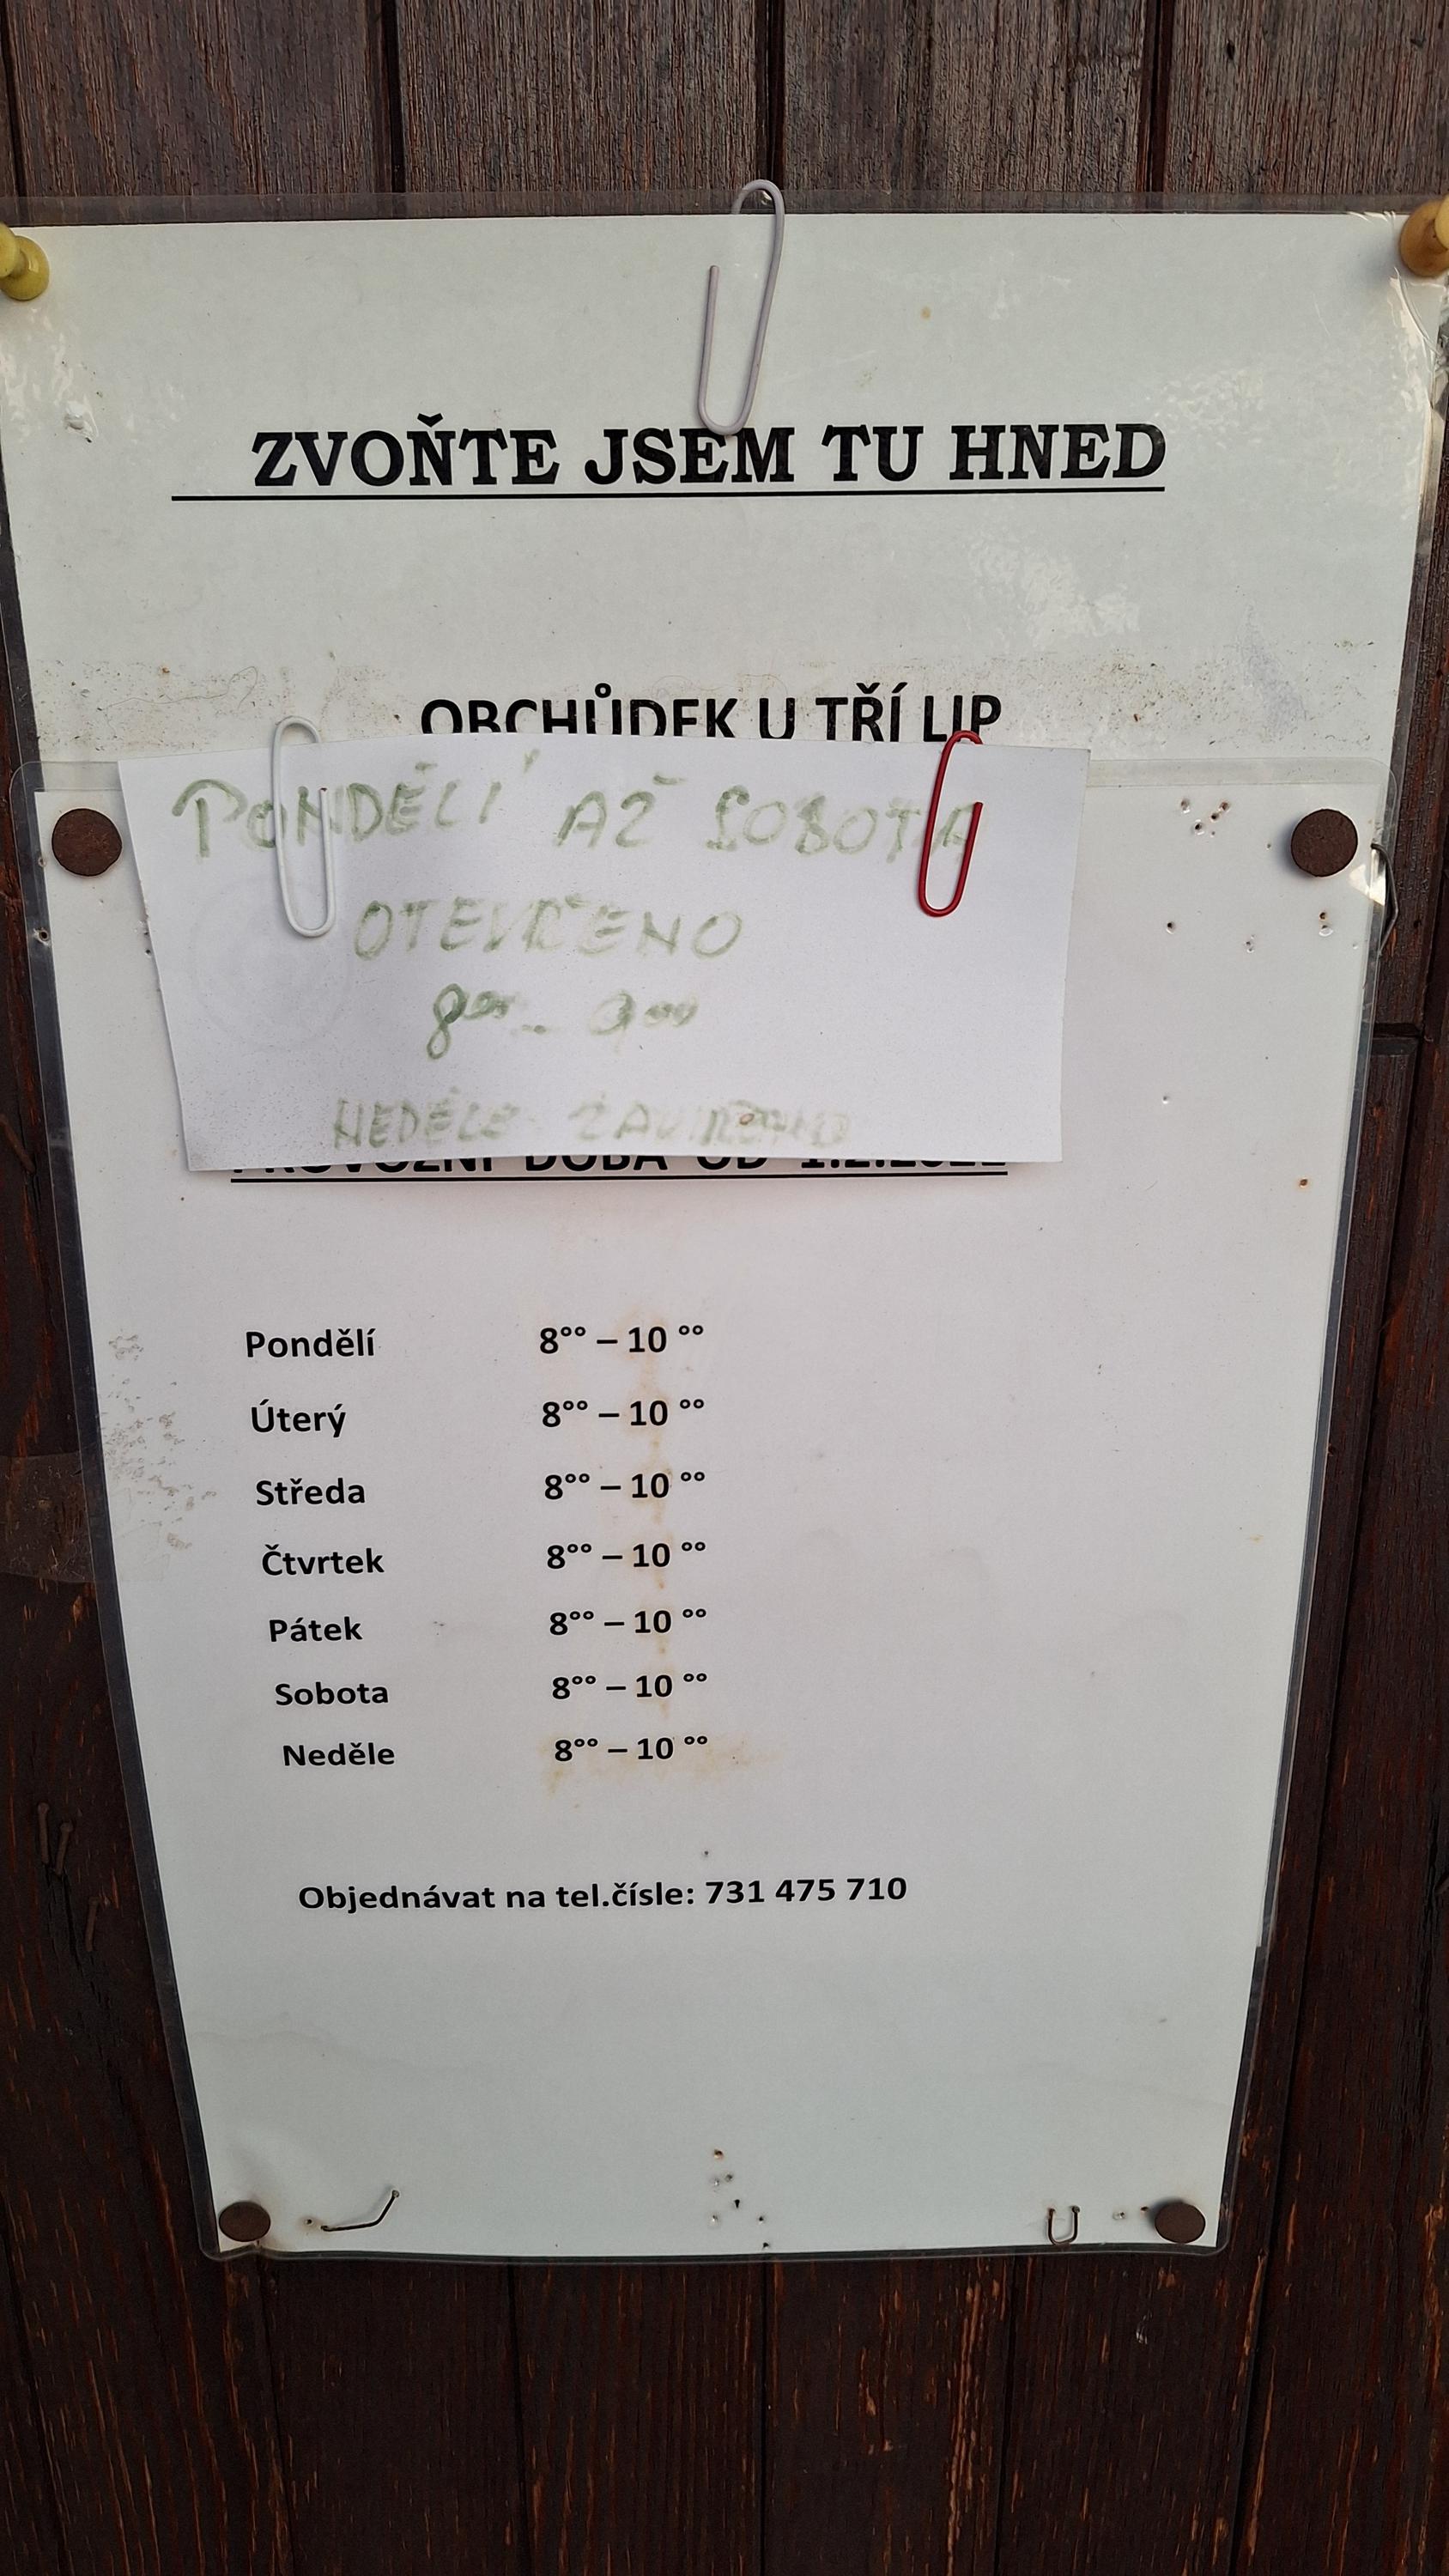 ZVOŇTE JSEM TU HNED
OBCHŮDEK U TŘÍ LIP
PONDĚLÍ AŽ SOBOTA
OTEVŘENO
8⁰⁰ - 9⁰⁰
NEDĚLE ZAVŘENO
PROVOZNÍ DOBA OD
Pondělí 8°° – 10 °°
Úterý 8°° – 10 °°
Středa 8°° – 10 °°
Čtvrtek 8°° – 10 °°
Pátek 8°° – 10 °°
Sobota 8°° – 10 °°
Neděle 8°° – 10 °°
Objednávat na tel.čísle: 731 475 710